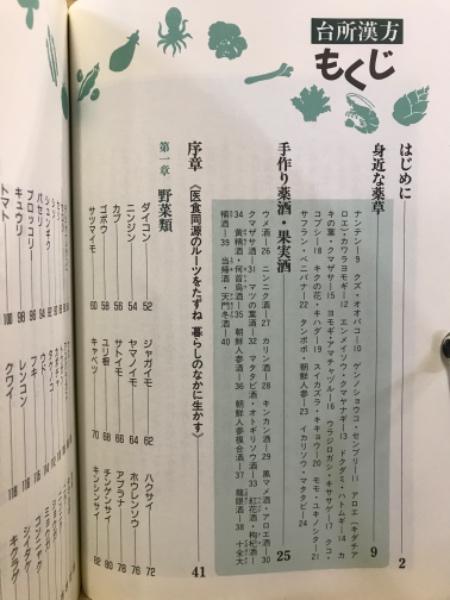 台所漢方
もくじ
はじめに 2
身近な薬草 9
ナンテン―9 クズ・オオバコ―10 ゲンノショウコ・センブリ―11 アロエ（キダチア
ロエ）・カワラヨモギ―12 エンメイソウ・クマヤナギ―13 ドクダミ・ハトムギ―14 カ
キの葉・クマザサ―15 ヨモギ・アマチャヅル―16 ウラジロガシ・キササゲ―17 クコ・
コブシ―18 キクの花・キハダ―19 スイカズラ・キキョウ―20 モモ・ユキノシタ―21
サフラン・ベニバナ―22 タンポポ・朝鮮人参―23 イカリソウ・マタタビ―24
手作り薬酒・果実酒 25
ウメ酒―26 ニンニク酒―27 カリン酒―28 キンカン酒―29 黒マメ酒・アロエ酒―30
クマザサ酒―31 マツの葉酒―32 マタタビ酒・オトギリソウ酒―33 紅花酒・枸杞酒―
34 黄精酒・何首烏酒―35 朝鮮人参酒―36 朝鮮人参複合酒―37 龍眼酒―38 十全大
補酒―39 当帰酒・天門冬酒―40
序章 〈医食同源のルーツをたずね 暮らしのなかに生かす〉 41
第一章 野菜類
ダイコン 52
ニンジン 54
カブ 56
ゴボウ 58
サツマイモ 60
ジャガイモ 62
ヤマノイモ 64
サトイモ 66
ユリ根 68
キャベツ 70
ハクサイ 72
ホウレンソウ 76
アブラナ 78
チンゲンサイ 80
キンシンサイ 82
シュンギク
パセリ 94
ブロッコリー 96
キュウリ 98
トマト 100
フキ
レンコン 116
クワイ 118
コンニャク
シイタケ
キクラゲ